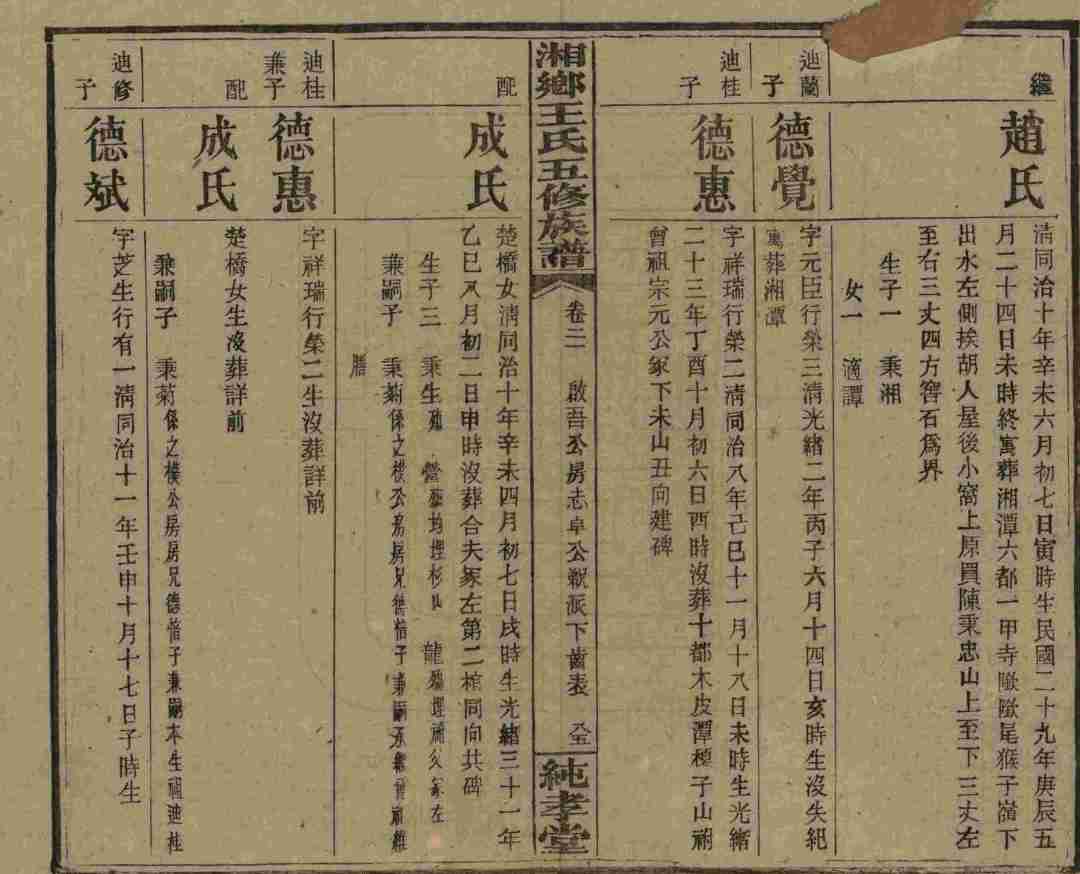 繼
趙氏
清同治十年辛未六月初七日寅時生民國二十九年庚辰五
月二十四日未時終寓葬湘潭六都一甲寺墩墩尾猴子嶺下
出水左側挨胡人屋後小窩上原買陳秉忠山上至下三丈左
至右三丈四方窖石爲界
生子一 秉湘
女一 適譚
迪蘭
子
德覺
字元臣行榮三清光緒二年丙子六月十四日亥時生沒失紀
寓葬湘潭
迪桂
子
德惠
字祥瑞行榮二清同治八年己巳十一月十八日未時生光緒
二十三年丁酉十月初六日酉時沒葬十都木皮潭 子山祔
曾祖宗元公冢下未山丑向建碑
湘鄉王氏五修族譜
卷二 啟吾公房志卓公 派下齒表
純孝堂
配
成氏
楚橋女清同治十年辛未四月初七日戌時生光緒三十一年
乙巳八月初二日申時沒葬合夫冢左第二棺同向共碑
生子三 秉生殤 均埋杉山 龍殤埋 冢左
兼嗣子 秉菊係之樸公房房兄德 子兼嗣承
迪桂
兼子
德惠
字祥瑞行榮二生沒葬詳前
配
成氏
楚橋女生沒葬詳前
兼嗣子 秉菊係之樸公房房兄德 子兼嗣本生祖迪桂
迪修
子
德斌
字芝生行有一清同治十一年壬申十月十七日子時生